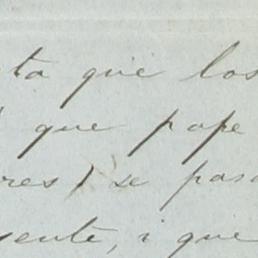 ta que los
que pape
res) se pasa
sente, i que